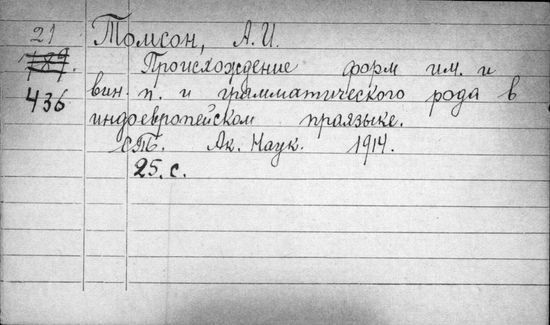 21
Томсон, А.И.
Происхождение форм им. и
436
вин. п. и грамматического рода в
индоевропейском праязыке.
СПб. Ак. Наук. 1914.
25. с.